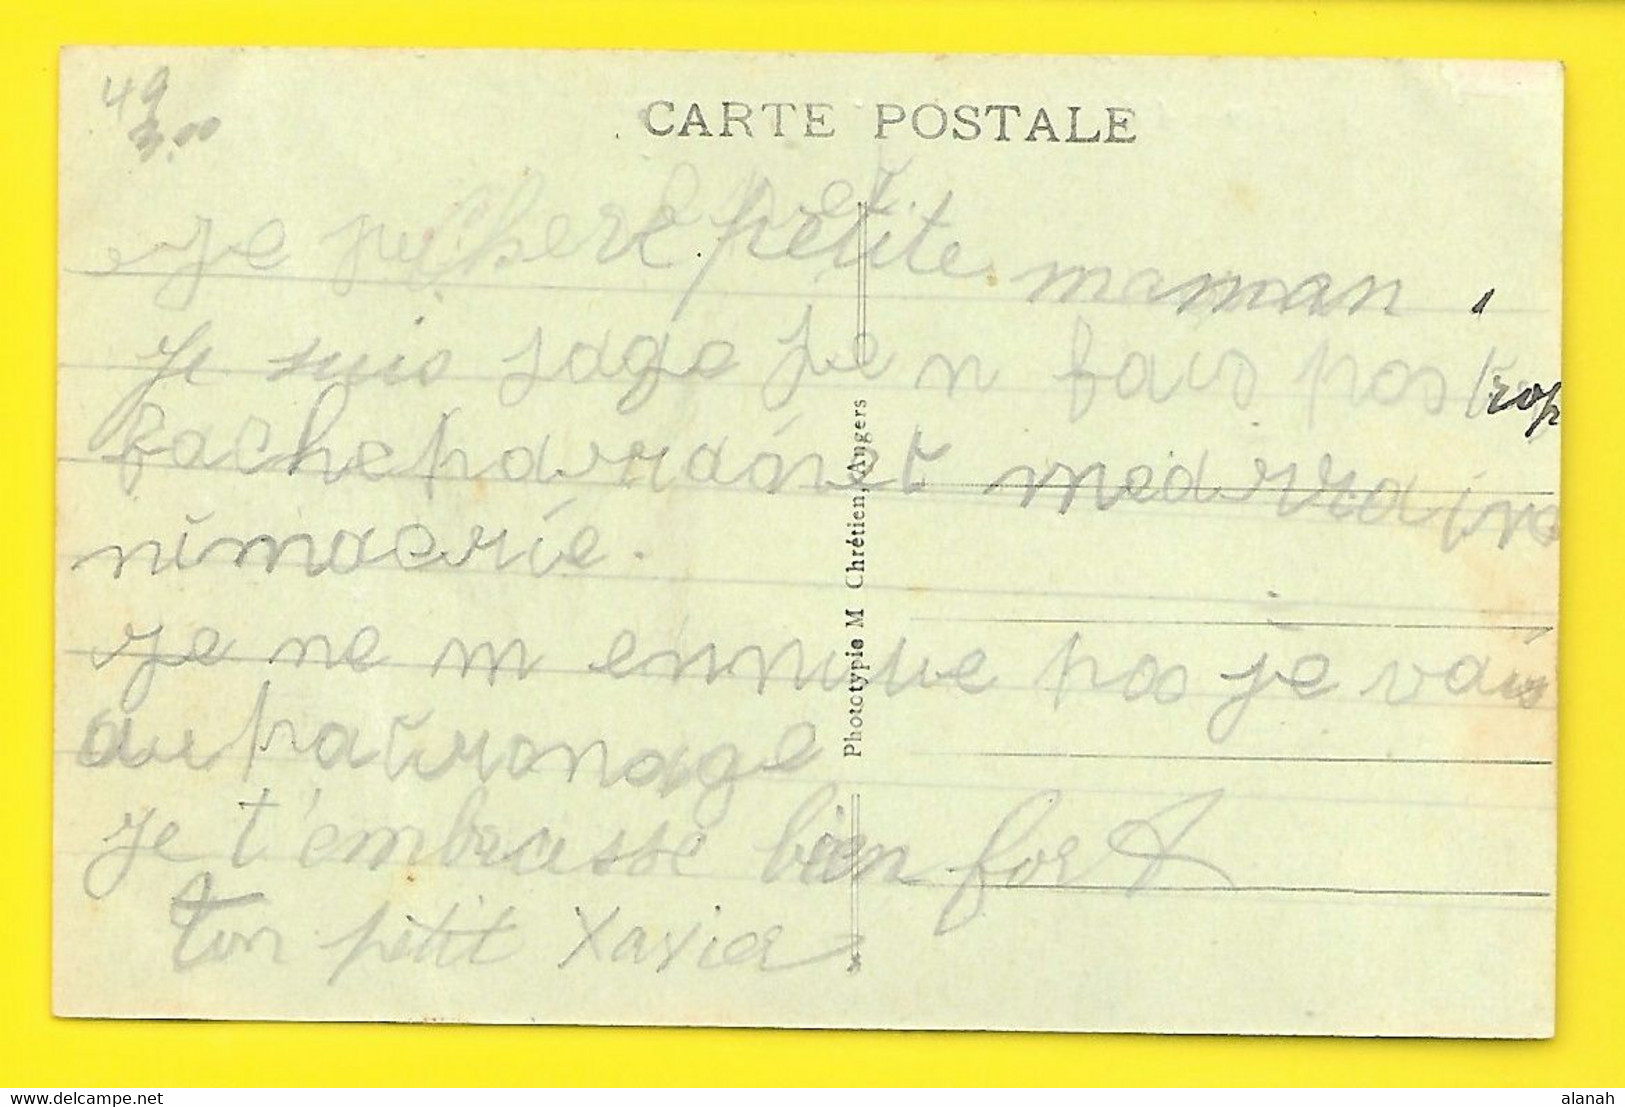 49
3.00
CARTE POSTALE
Chere petite maman,
Je suis sage je n fais pas trop
fache et
nimaerie.
Je ne m ennuue pas je vais
au patronage
je t'embrasse bien fort
ton petit Xavier
Phototypie M Chrétien, Angers
delcampe.net
alanah